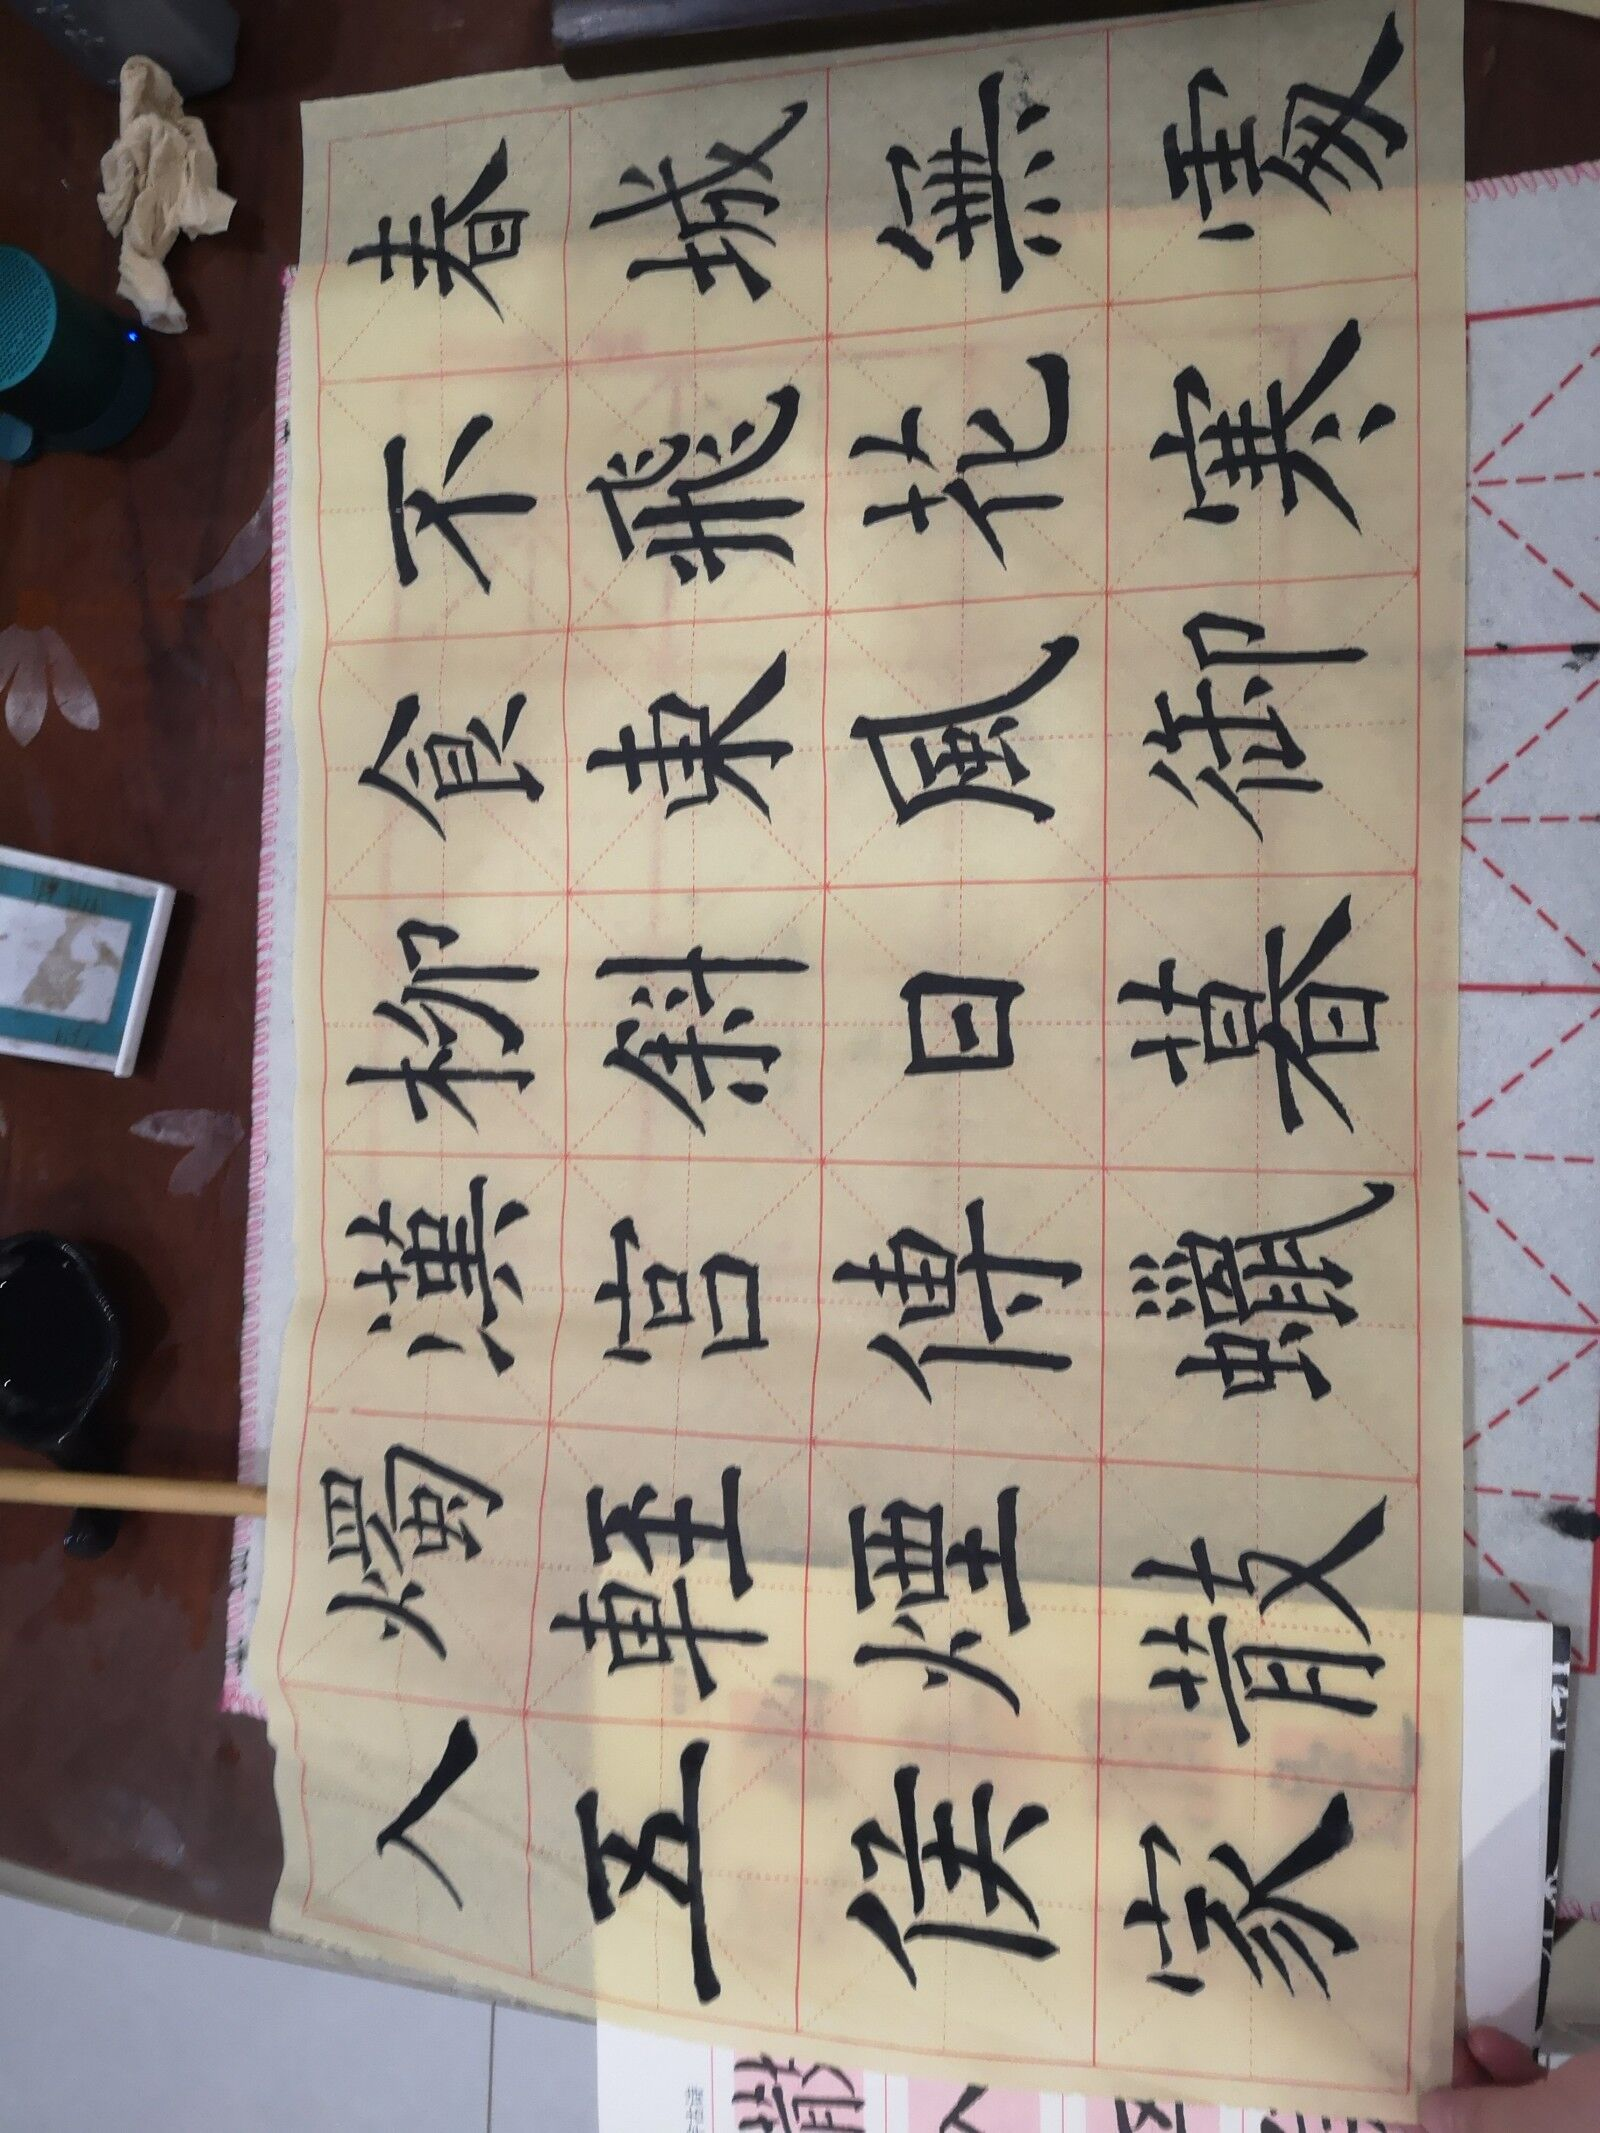 春城無處
不飛花寒
食東風御
柳斜日暮
漢宮傳蠟
燭輕煙散
入五侯家